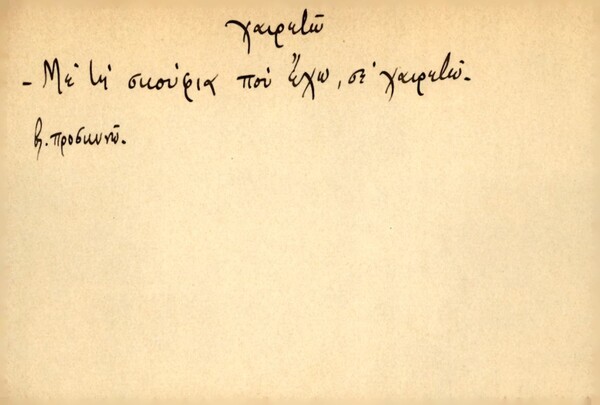 χαιρετῶ
- Μὲ τὴ σκούφια ποὺ ἔχω, σὲ χαιρετῶ.
β. προσκυνῶ.